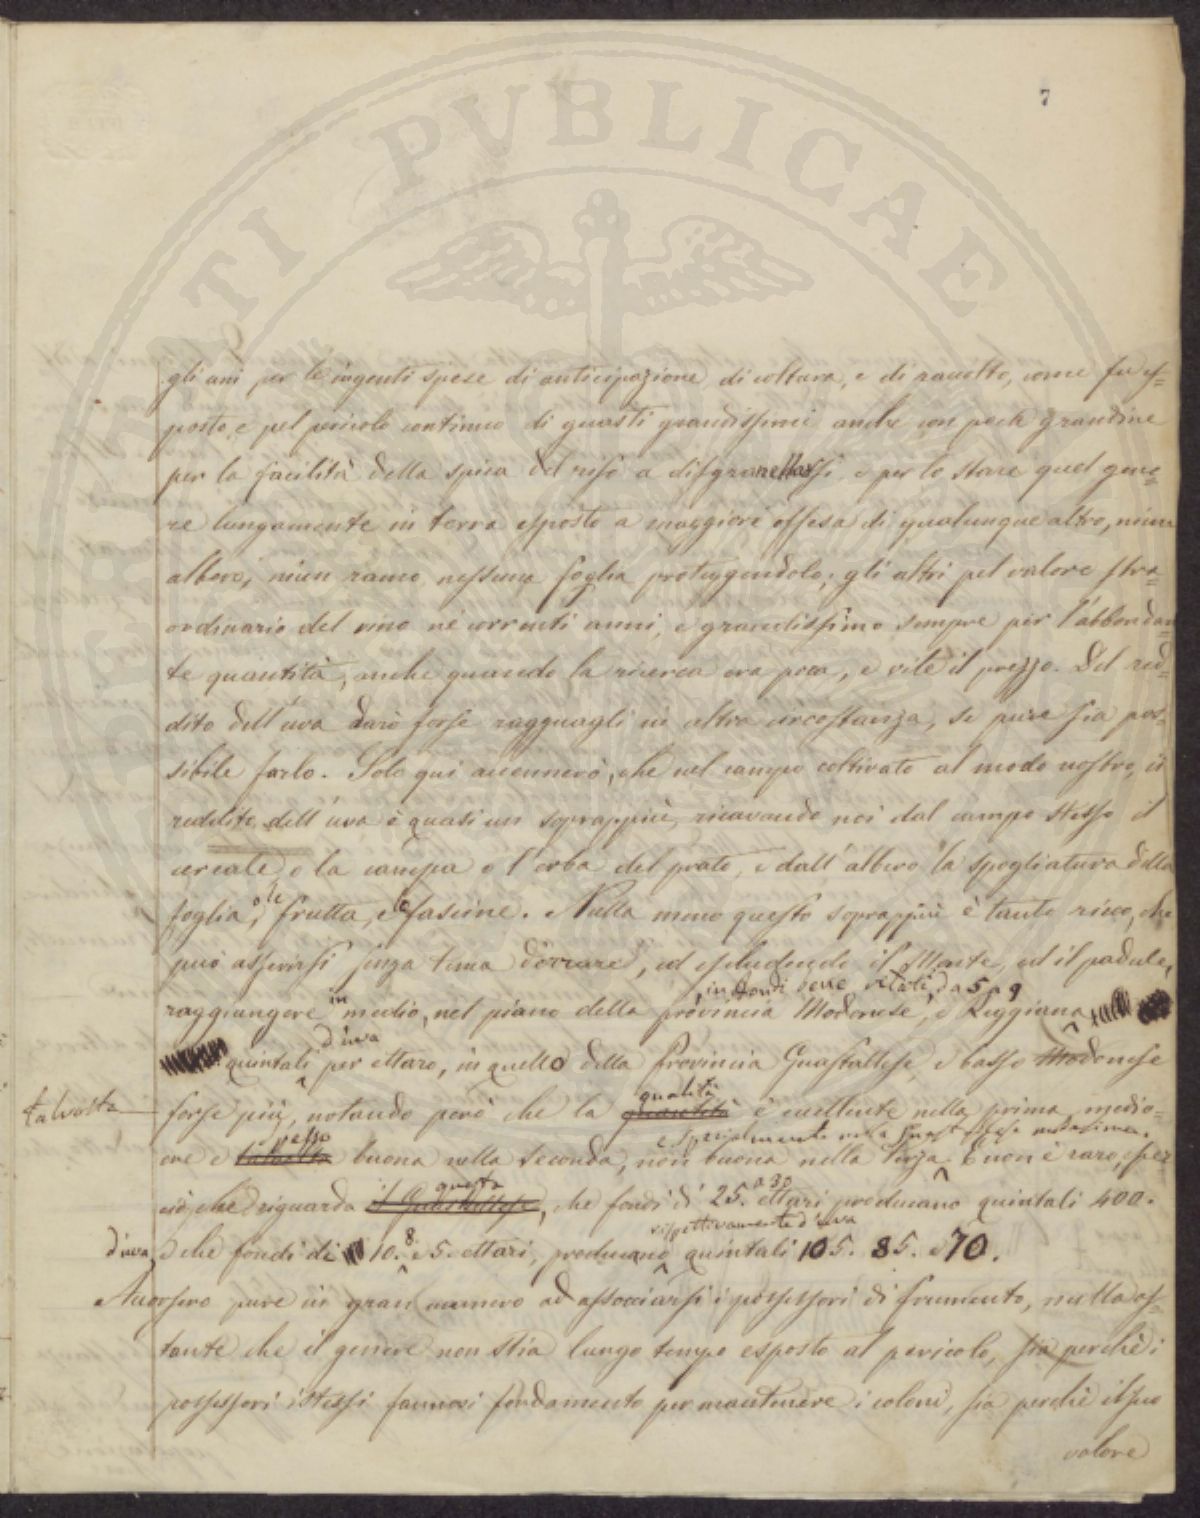 7
gli uni per le ingenti spese di anticipazione di coltura, e di raccolto, come fu es=
posto, e pel pericolo continuo di guasti grandissimi anche con poca grandine
per la facilità della spica del riso a disgranellarsi, e per lo stare quel gene=
re lungamente in terra esposto a maggiore offesa di qualunque altro, niun
albero, niun ramo, nessuna foglia proteggendolo; gli altri pel valore stra=
ordinario del vino ne' correnti anni, e grandissimo sempre per l'abbondan=
te quantità, anche quando la ricerca era poca, e vile il prezzo. Del red=
dito dell'uva darò forse ragguagli in altra circostanza, se pure sia pos=
sibile farlo. Solo qui accennerò, che nel campo coltivato al modo nostro, il
reddito dell'uva è quasi un soprappiù, ricavando noi dal campo stesso il
cereale o la canepa o l'erba del prato, e dall'albero la spogliatura della
foglia, o le frutta, e le fascine. Nulla meno questo soprappiù è tanto ricco, che
può asserirsi senza tema d'errare, ed escludendo il Monte, ed il padule,
in fondi bene vitati, da 5 a 9
raggiungere in medio, nel piano della provincia Modonese, e Reggiana
d'uva
quintali per ettaro, in quello della Provincia Guastallese, e basso Modonese
talvolta
qualità
forse più, notando però che la quantità è eccellente nella prima, medio=
spesso
e specialmente nella Guastallese medesima.
cre e talvolta buona nella seconda, non buona nella terza. E non è raro, per
questa
a 30
ciò che riguarda il Guastallese, che fondi di 25. ettari producano quintali 400.
rispettivamente d'uva
d'uva, e che fondi di 10. 8. e 5. ettari, producano quintali 105. 85. e 70.
Accorsero pure in gran numero ad associarsi i possessori di frumento, nulla os=
tante che il genere non stia lungo tempo esposto al pericolo, sia perchè i
possessori istessi fannosi fondamento per mantenere i coloni, sia perchè il suo
valore
PERATI PVBLICAE